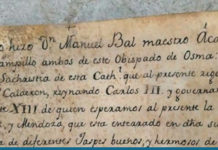 o hizo Dn. Manuel Bal maestro Aca
ampillo ambos de este Obispado de Osma
Sachristia de esta Cathl. que al presente rige
Calderon, reynando Carlos III. y governan
te XIII de quien esperamos al presente la
z, y Mendoza, que esta enserado en dha su
de diferentes Jaspes buenos, y hermosos de